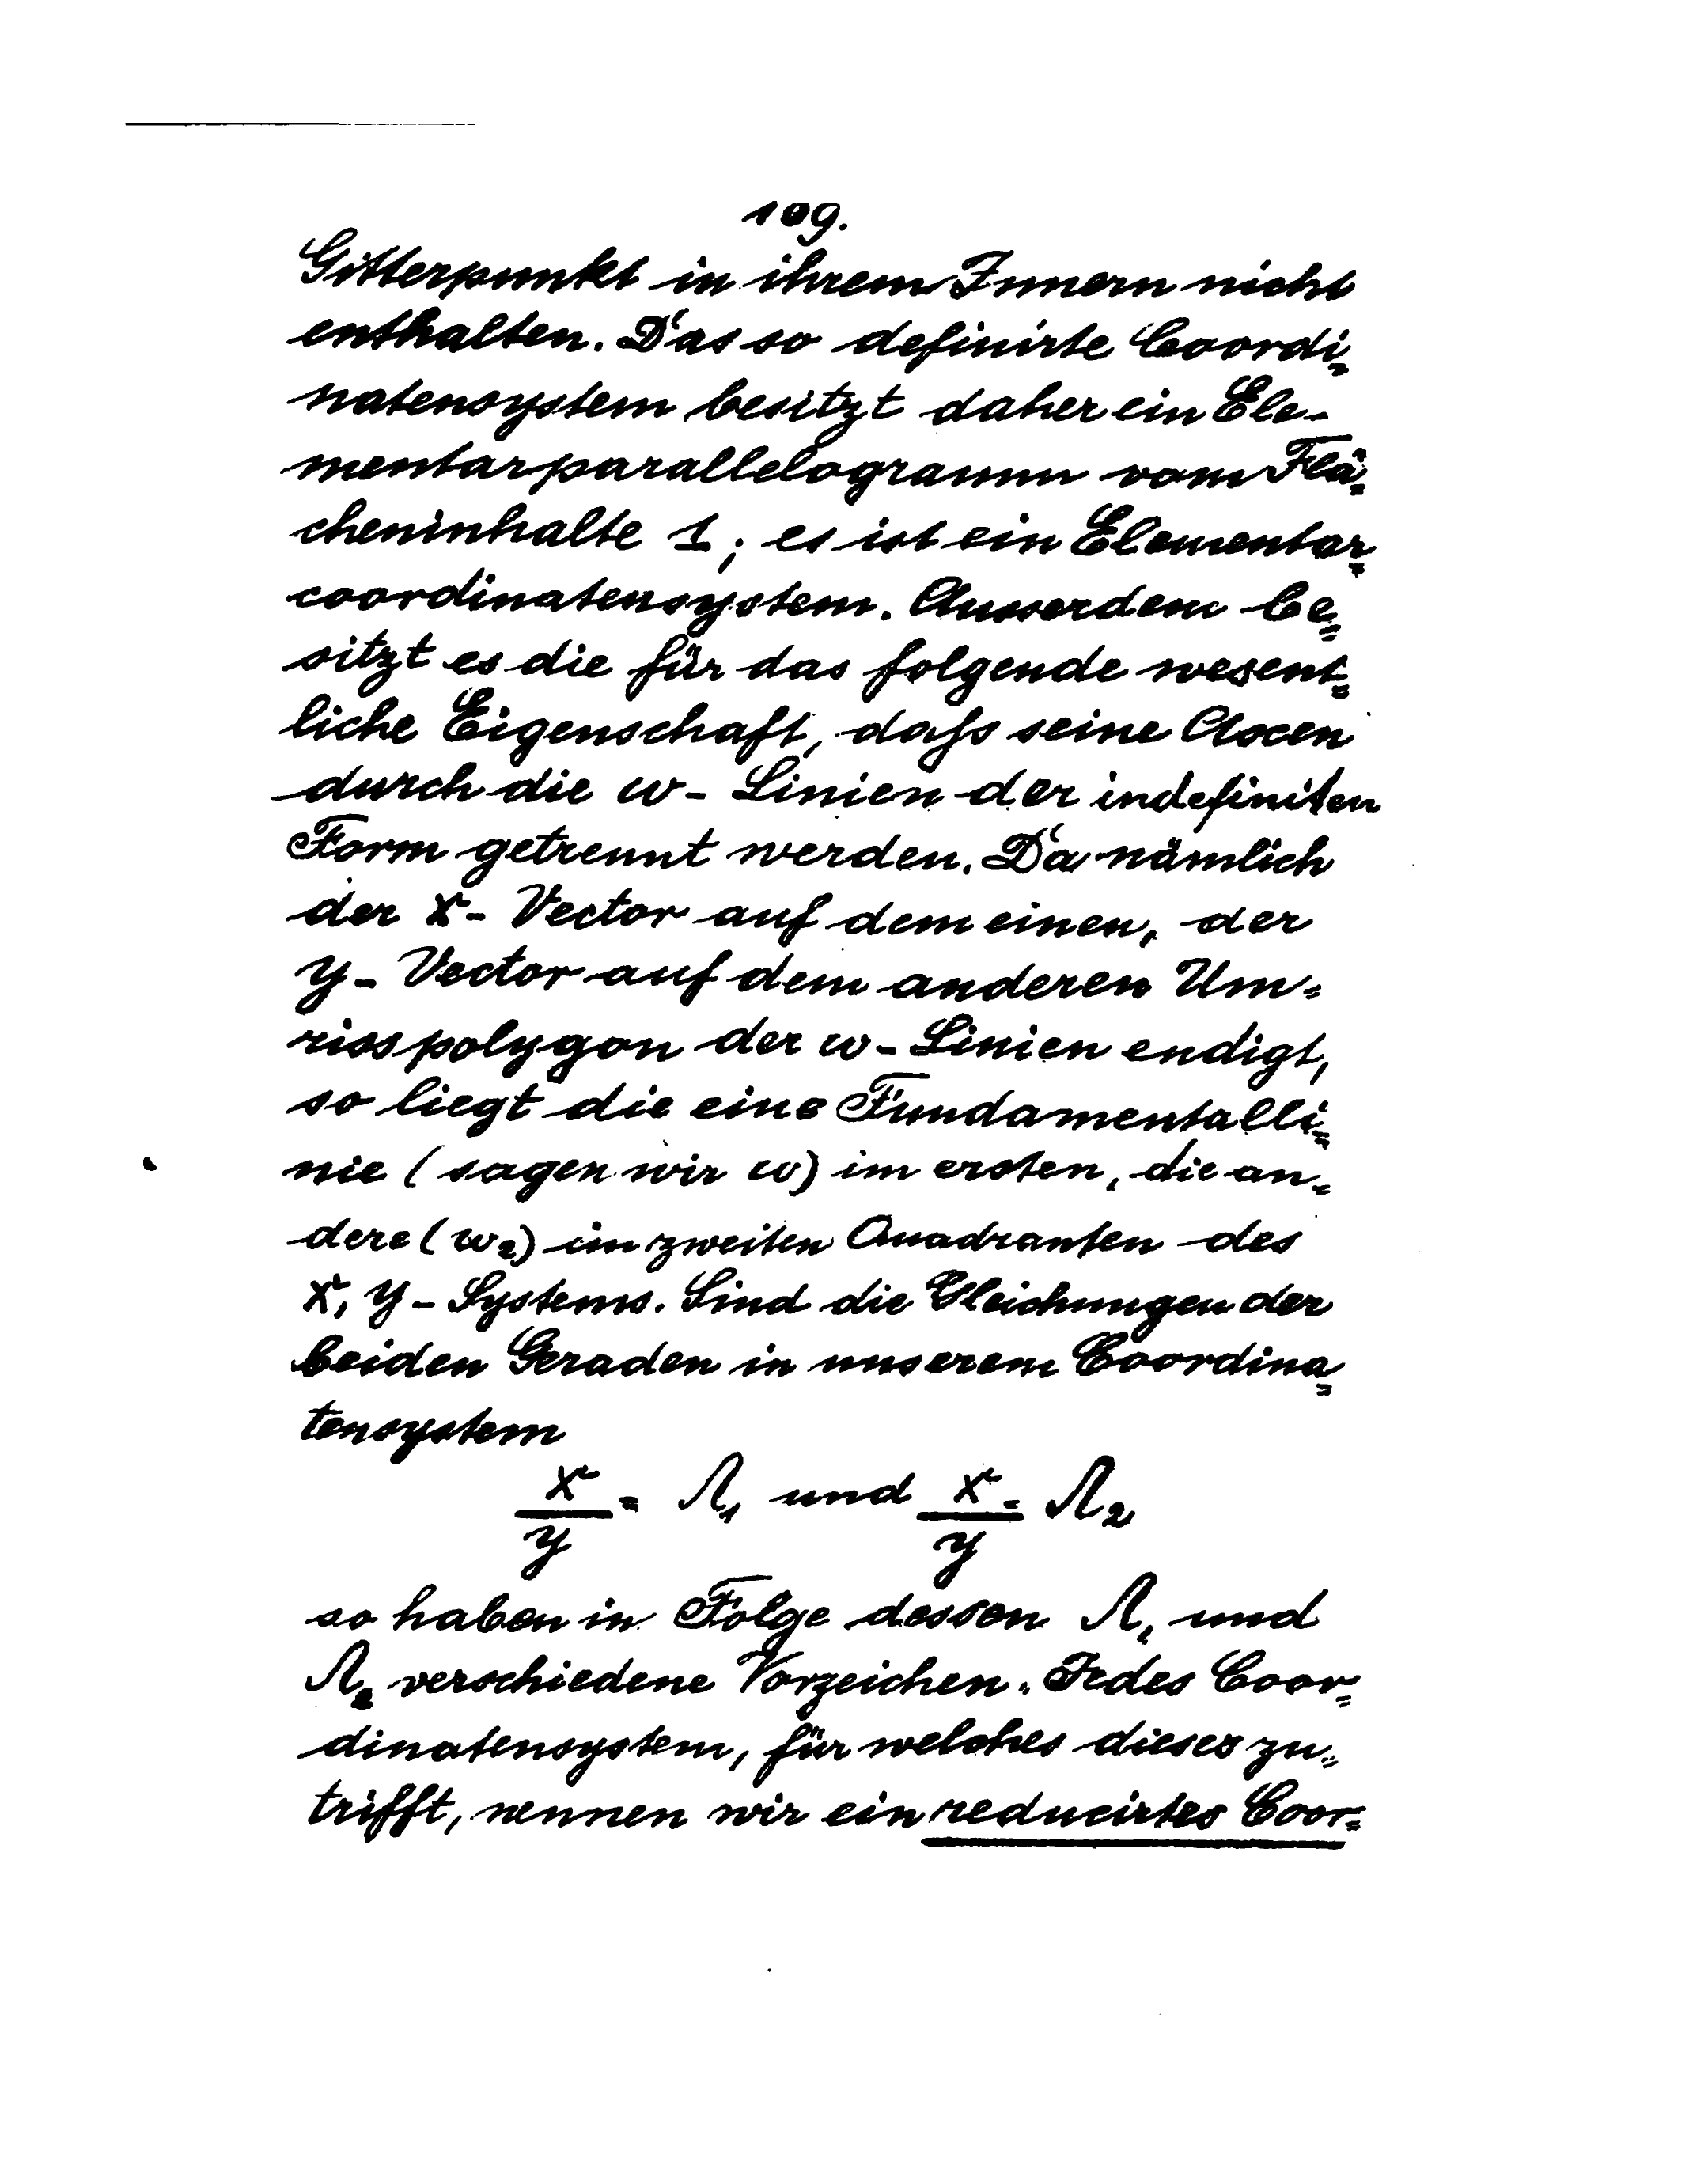 109.
Gitterpunkt in ihrem Innern nicht
enthalten. Das so definirte Coordi=
natensystem besitzt daher ein Ele-
mentarparallelogramm vom Flä=
cheninhalte 1; es ist ein Elementar=
coordinatensystem. Ausserdem be=
sitzt es die für das folgende wesent=
liche Eigenschaft, dafs seine Axen
durch die w- Linien der indefiniten
Form getrennt werden. Da nämlich
der x- Vector auf dem einen, der
y- Vector auf dem anderen Um=
risspolygon der w- Linien endigt,
so liegt die eine Fundamentalli=
nie (sagen wir w) im ersten, die an=
dere (w₂) im zweiten Quadranten des
x, y- Systems. Sind die Gleichungen der
beiden Geraden in unserem Coordina=
tensystem
x/y = Λ₁ und x/y = Λ₂
so haben in Folge dessen Λ₁ und
Λ₂ verschiedene Vorzeichen. Jedes Coor=
dinatensystem, für welches dieses zu=
trifft, nennen wir ein reducirtes Coor=